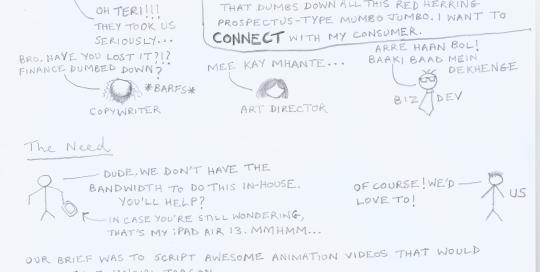 OH TERI!!!
THEY TOOK US
SERIOUSLY...
THAT DUMBS DOWN ALL THIS RED HERRING
PROSPECTUS-TYPE MUMBO JUMBO. I WANT TO
CONNECT WITH MY CONSUMER.
BRO, HAVE YOU LOST IT?!?
FINANCE DUMBED DOWN?
*BARFS*
COPYWRITER
MEE KAY MHANTE...
ART DIRECTOR
ARRE HAAN BOL!
BAAKI BAAD MEIN
DEKHENGE
BIZ DEV
The Need
DUDE, WE DON'T HAVE THE
BANDWIDTH TO DO THIS IN-HOUSE.
YOU'LL HELP?
IN CASE YOU'RE STILL WONDERING,
THAT'S MY iPAD AIR 13. MMHMM...
OF COURSE! WE'D
LOVE TO!
US
OUR BRIEF WAS TO SCRIPT AWESOME ANIMATION VIDEOS THAT WOULD